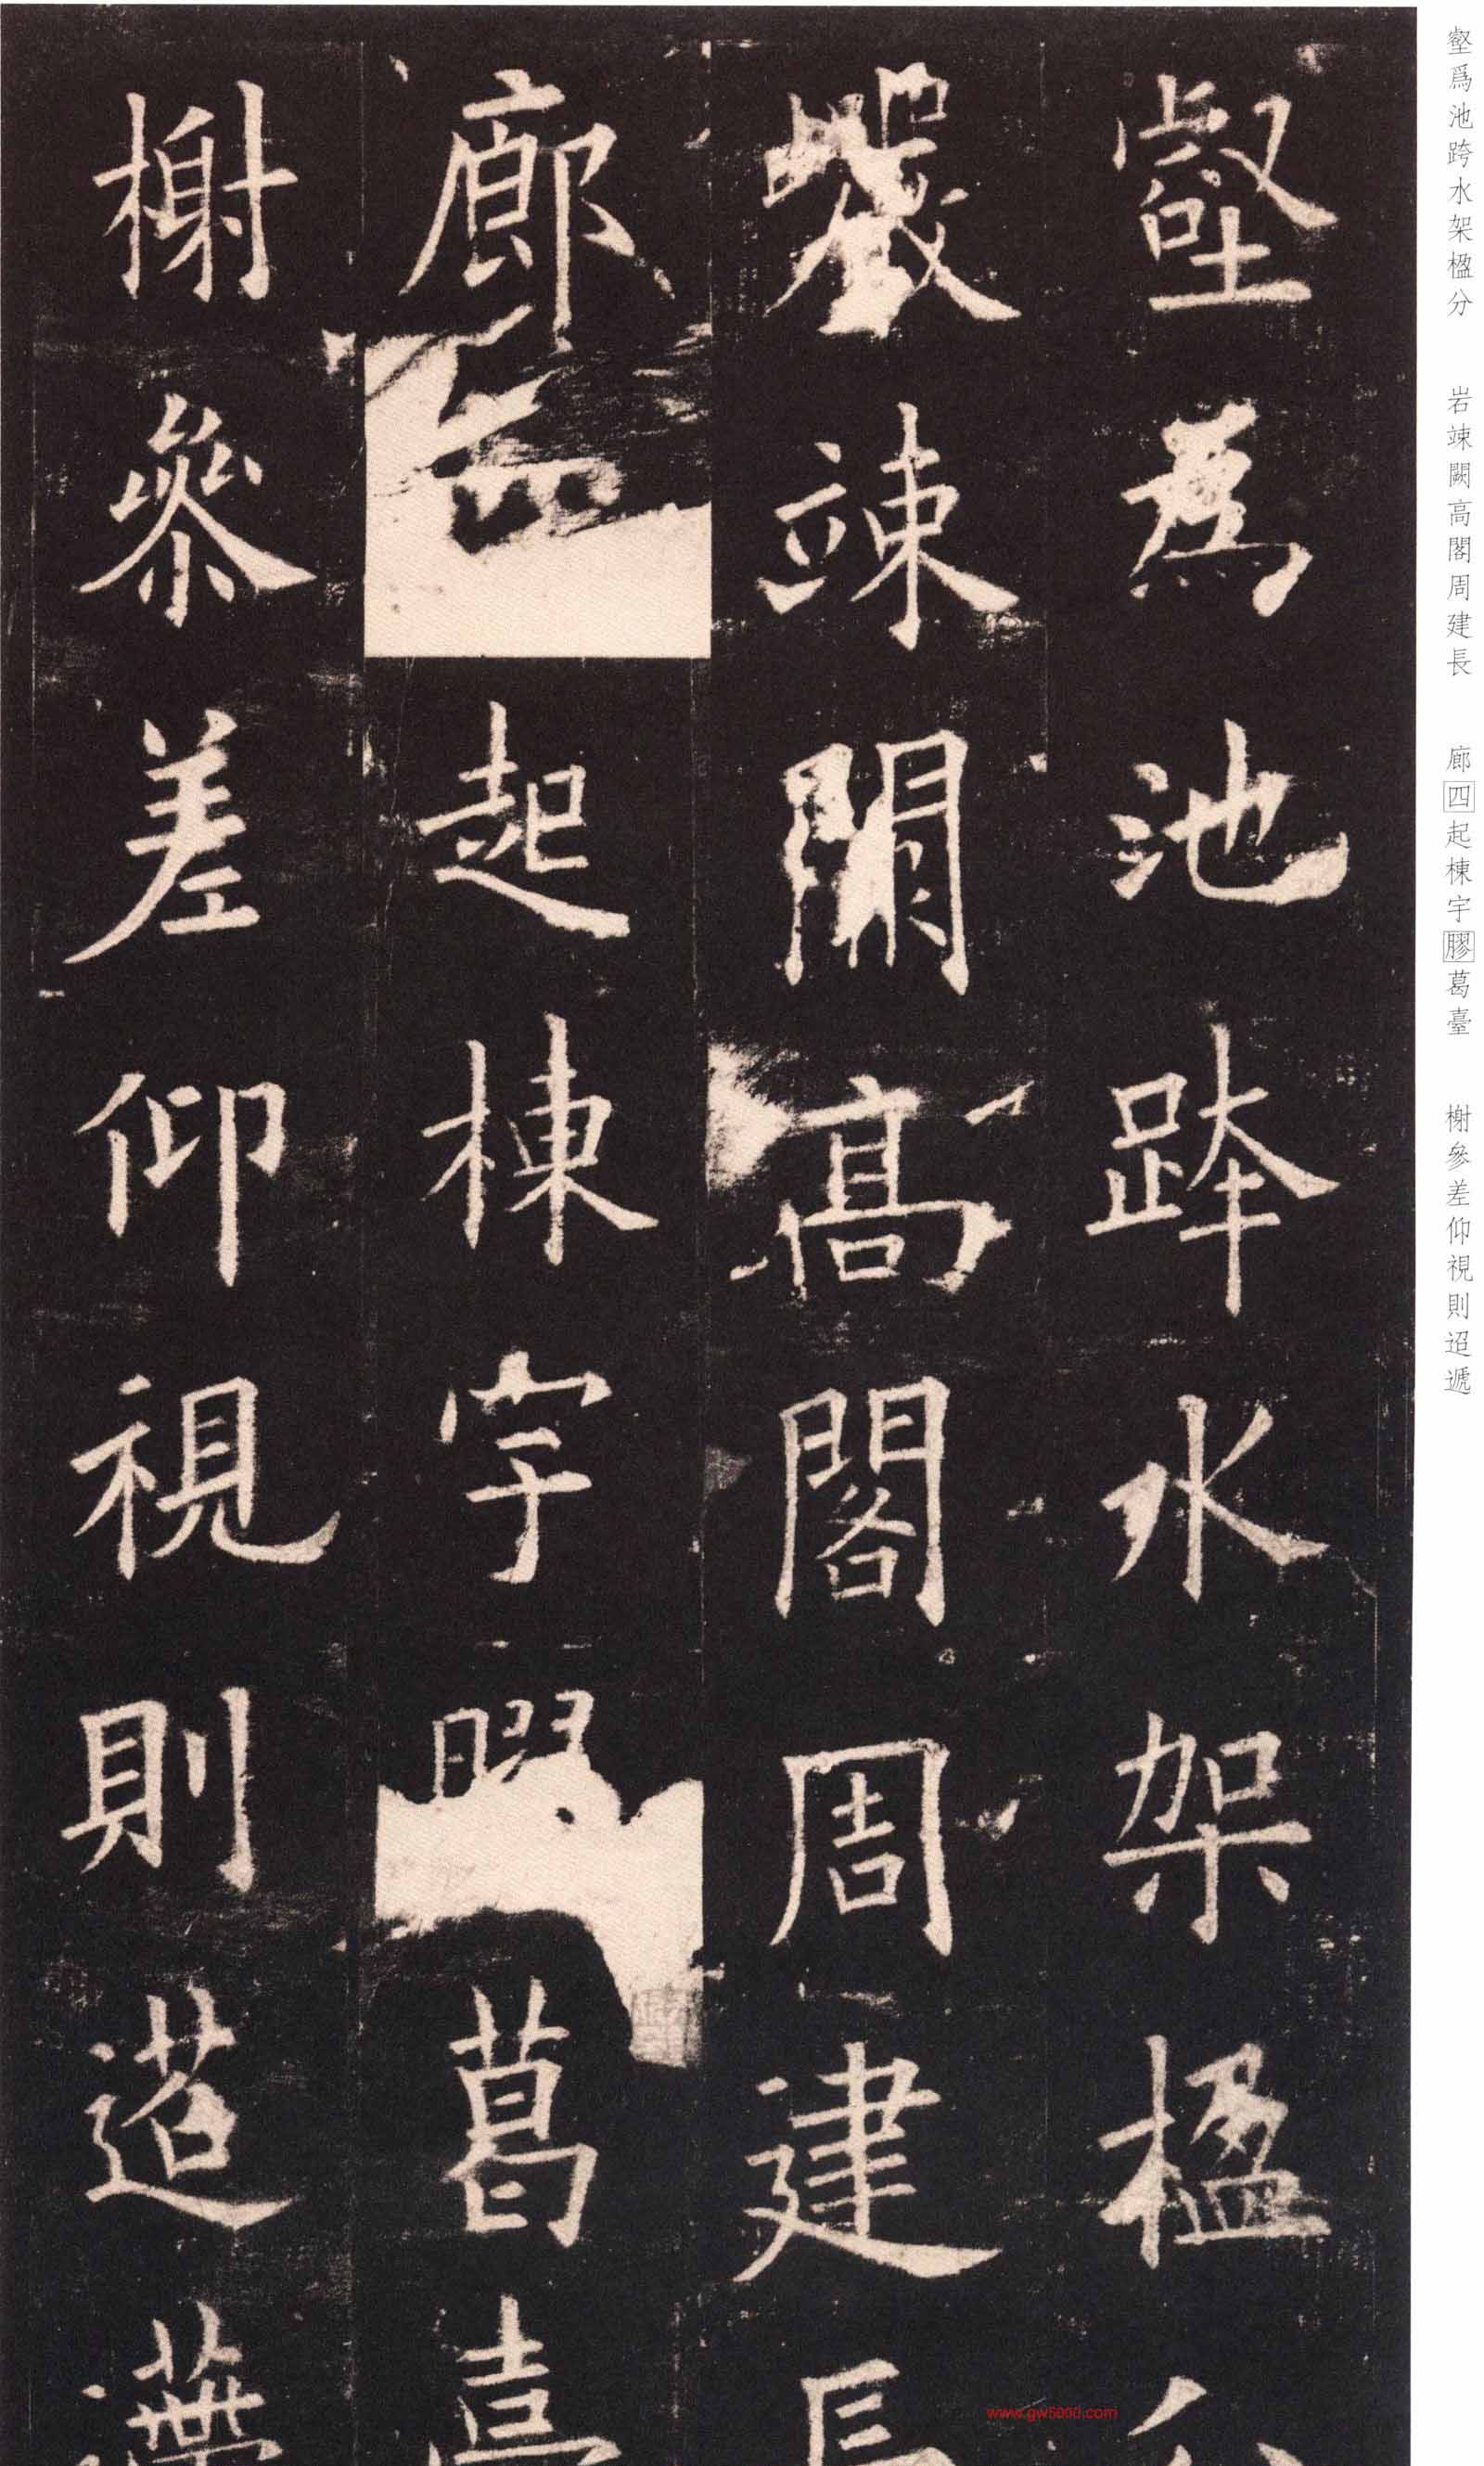 壑為池跨水架楹分
巖竦闕高閣周建長
廊起棟宇葛臺
榭參差仰視則迢遰
壑爲池跨水架楹分
岩竦闕高閣周建長
廊四起棟宇膠葛臺
榭參差仰視則迢遞
www.gw5000.com